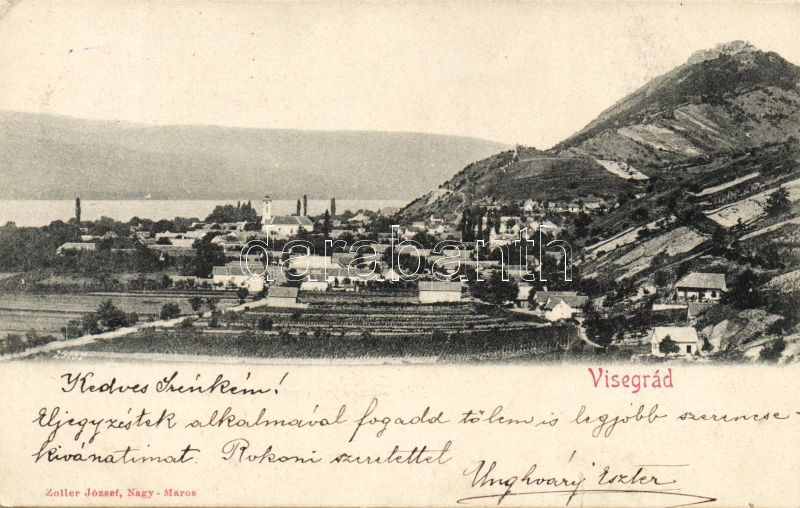 darabanth
Visegrád
Kedves Irénkém!
Eljegyzéstek alkalmával fogadd tőlem is legjobb szerencse-
kivánatimat. Rokoni szeretettel
Unghváry Eszter
Zoller József, Nagy-Maros